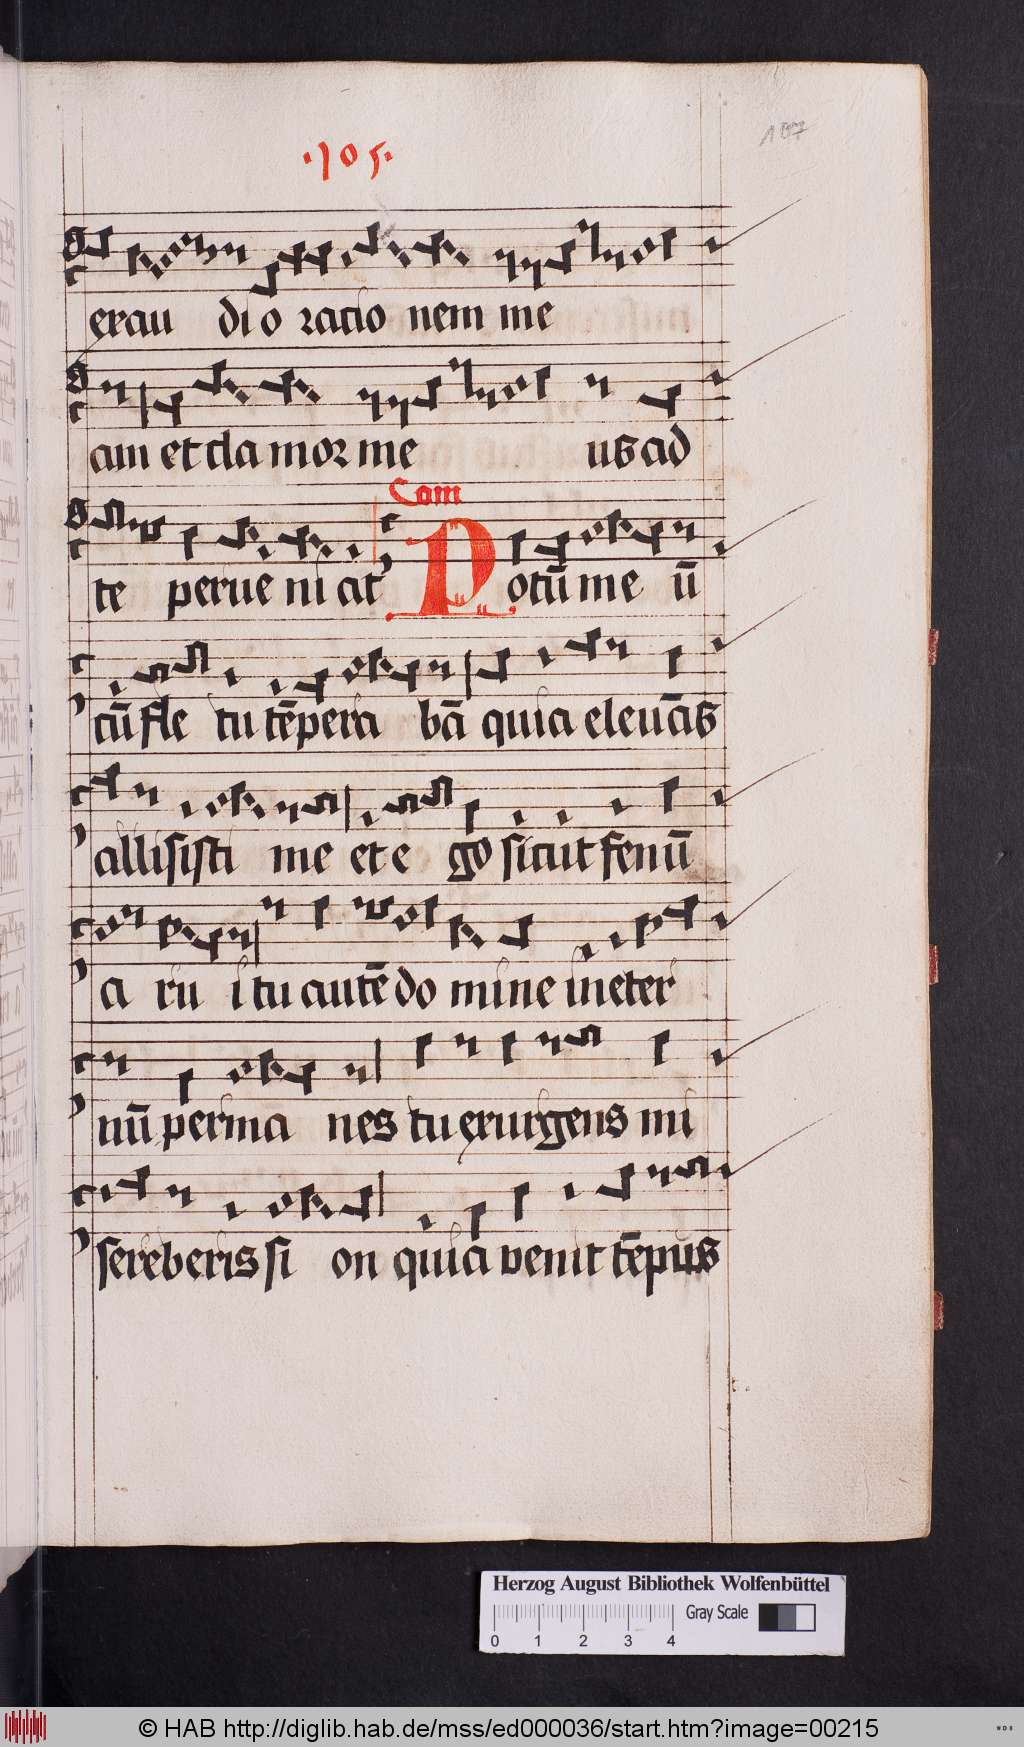 ·105·
107
exau dio ratio nem me
am et cla mor me us ad
Com
te perue ni at Potū me ū
cū fle tu tēpera bā quia eleuās
allisisti me et e go sicut fenū
a ru i tu autē do mine in eter
nū perma nes tu exurgens mi
sereberis si on quia venit tēpus
Herzog August Bibliothek Wolfenbüttel
Gray Scale
0 1 2 3 4
© HAB http://diglib.hab.de/mss/ed000036/start.htm?image=00215